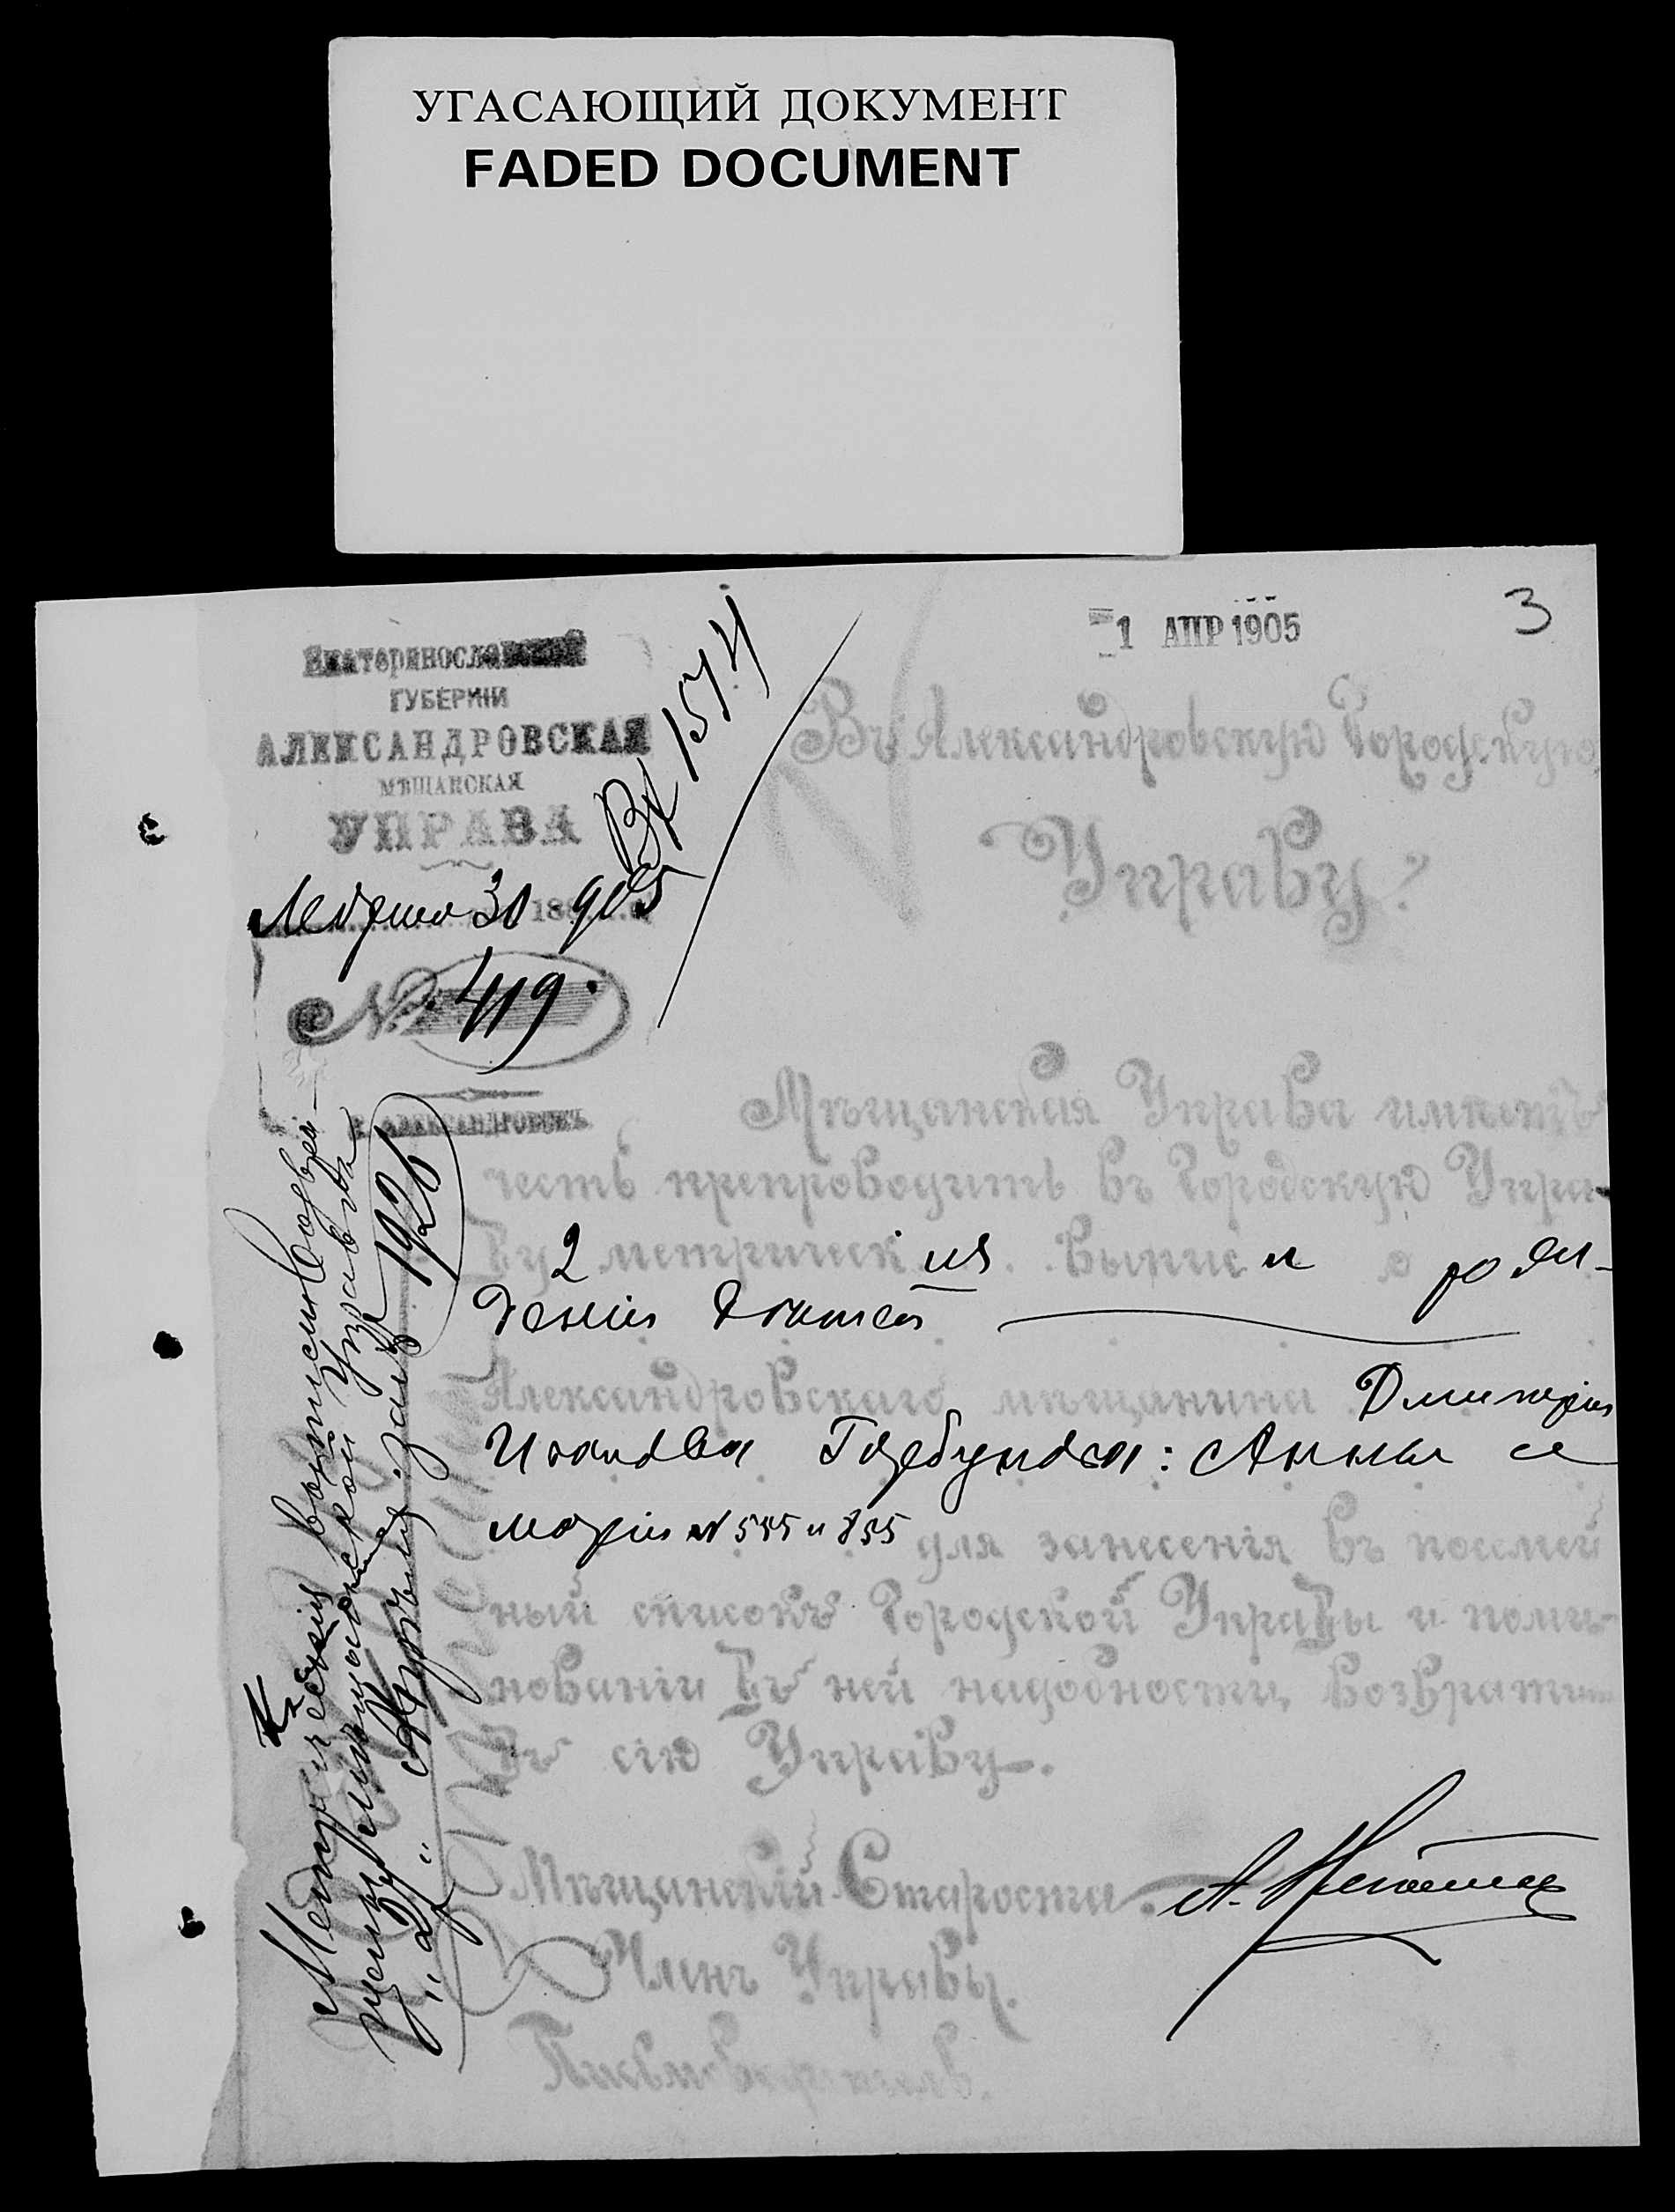 УГАСАЮЩИЙ ДОКУМЕНТ
FADED DOCUMENT
3
1 АПР 1905
Екатеринославской
ГУБЕРНІИ
АЛЕКСАНДРОВСКАЯ
МѢЩАНСКАЯ
УПРАВА
Марта 30 1905
№ 419.
Г. АЛЕКСАНДРОВСКЪ
Вх 1574
Въ Александровскую Городскую
Управу.
Мѣщанская Управа имѣетъ
честь препроводить въ Городскую Упра-
ву 2 метрическия выписи о рож-
денiи дѣтей
Александровскаго мѣщанина Дмитрія
Иванова Горбунова: Анны и
Маріи № 555 и 855 для занесенія въ посемей
ный списокъ Городской Управы и поми-
нованіи въ ней надобности, возвратить
въ сію Управу.
Мѣщанскій Староста
Членъ Управы
Письмоводитель
Метрическія выписи
мѣщанской Управѣ
1926